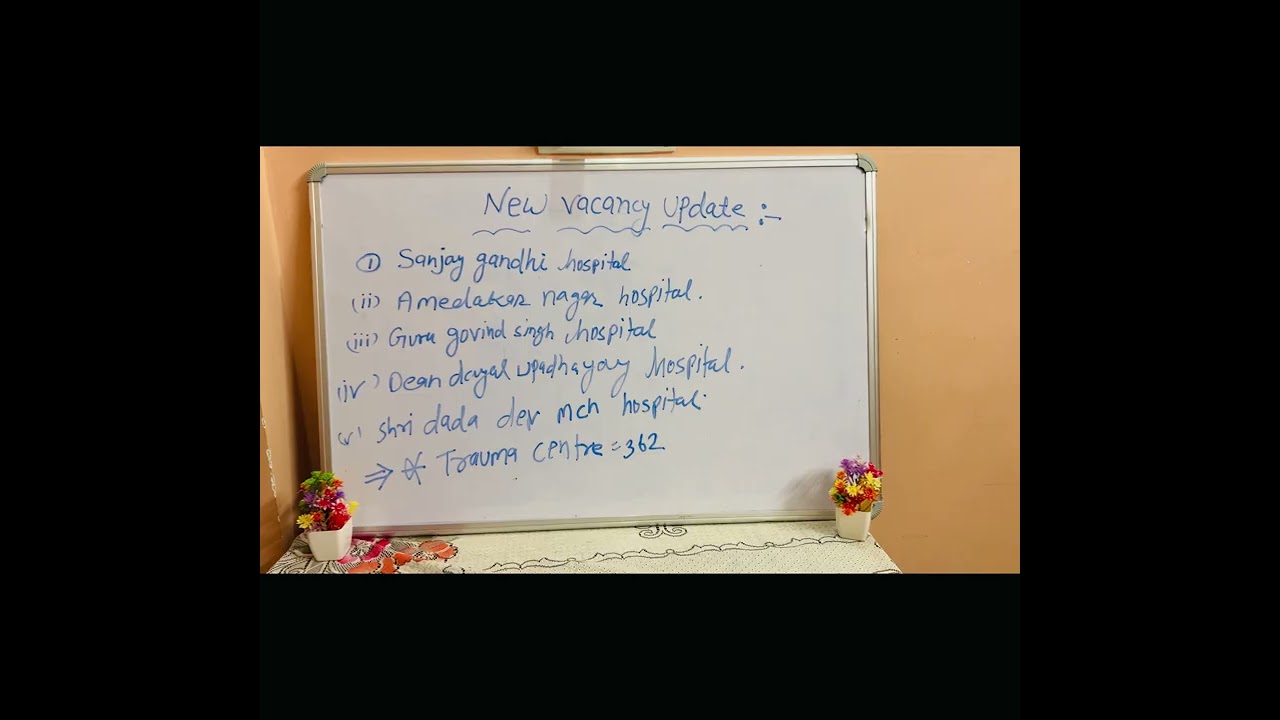 New vacancy update :-
① Sanjay gandhi hospital
(ii) Amedakar nagar hospital.
(iii) Guru govind singh hospital
(iv) Dean dayal upadhayay hospital.
(v) shri dada dev mch hospital.
⇒ * Trauma centre = 362